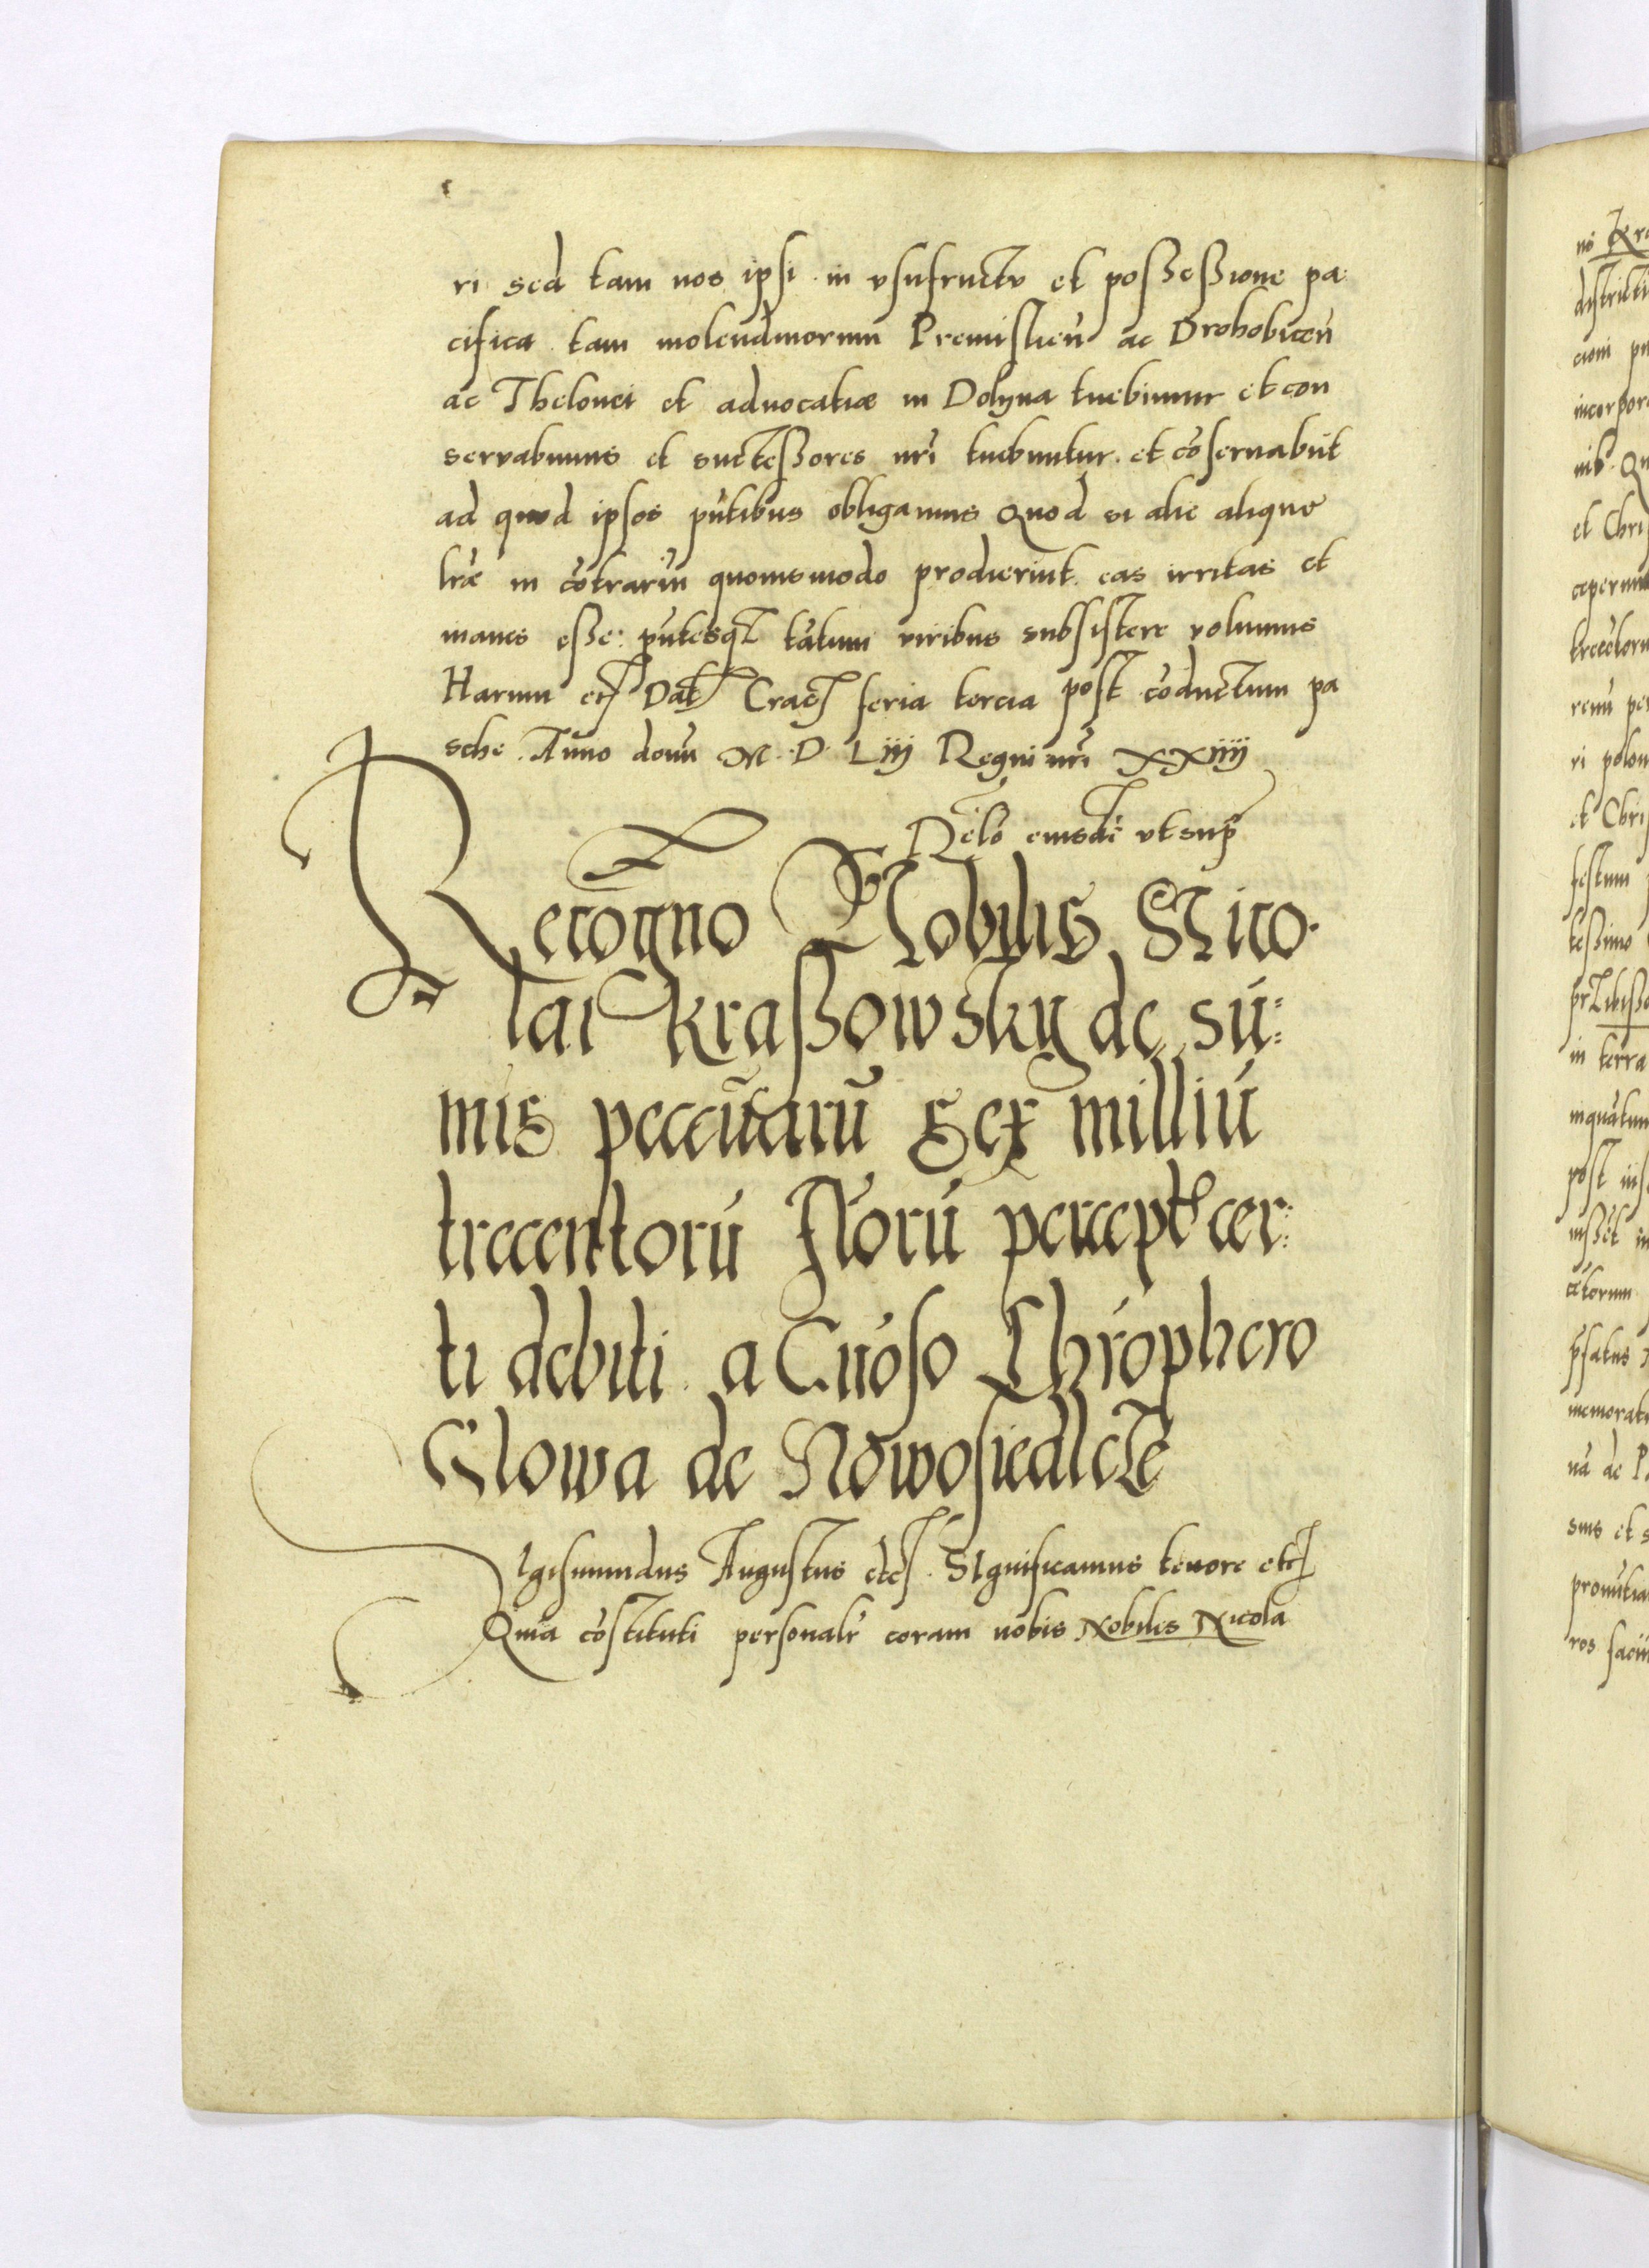 ri sed tam nos ipsi in vsufructu et possessione pa
cifica tam molendinorum Premislien̄ ac Drohobicen̄
ac Thelonei et aduocatiæ in Dolyna tuebimur et con
servabimus et successores nrī tuebuntur et cōseruabūt
ad quod ipsos pn̄tibus obligamus Quod si alie alique
lrē in cōtrariū quouismodo prodierint eas irritas et
inanes esse: pn̄tesq tātum viribus subsistere volumus
Harum etc Dat Crac feria tercia post cōductum pa
sche Anno domī M. D. Liij Regni nrī XXiiij
Relō eiusdē vt sup
Recōgno Nobilis Nico
lai Krassowsky de sū:
mis peccūiarū Sex milliū
trecentorū Florū percept cer:
ti debiti a Grōso Chrōphero
Glowa de Nowosiedlcze
Sigismundus Augustus etc. Significamus tenore etc
Quia cōstituti personalr coram nobis Nobilis Nicola
nō Kra
districti
incorpor
et Chri
ceperunt
ri polon
et Chri
festum
in terra
inquātum
post
memorat
suis et s